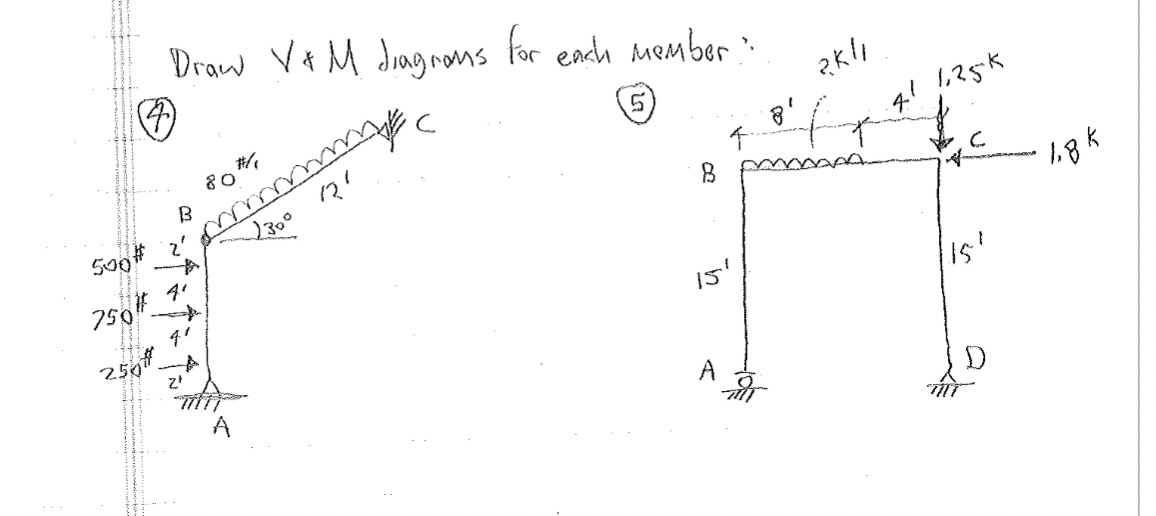 Draw V & M diagrams for each member:
④
80 #/'
12'
C
B
30°
500#
2'
4'
750#
4'
250#
2'
A
⑤
2k/'
1.25k
8'
4'
B
C
1.8k
15'
15'
A
D